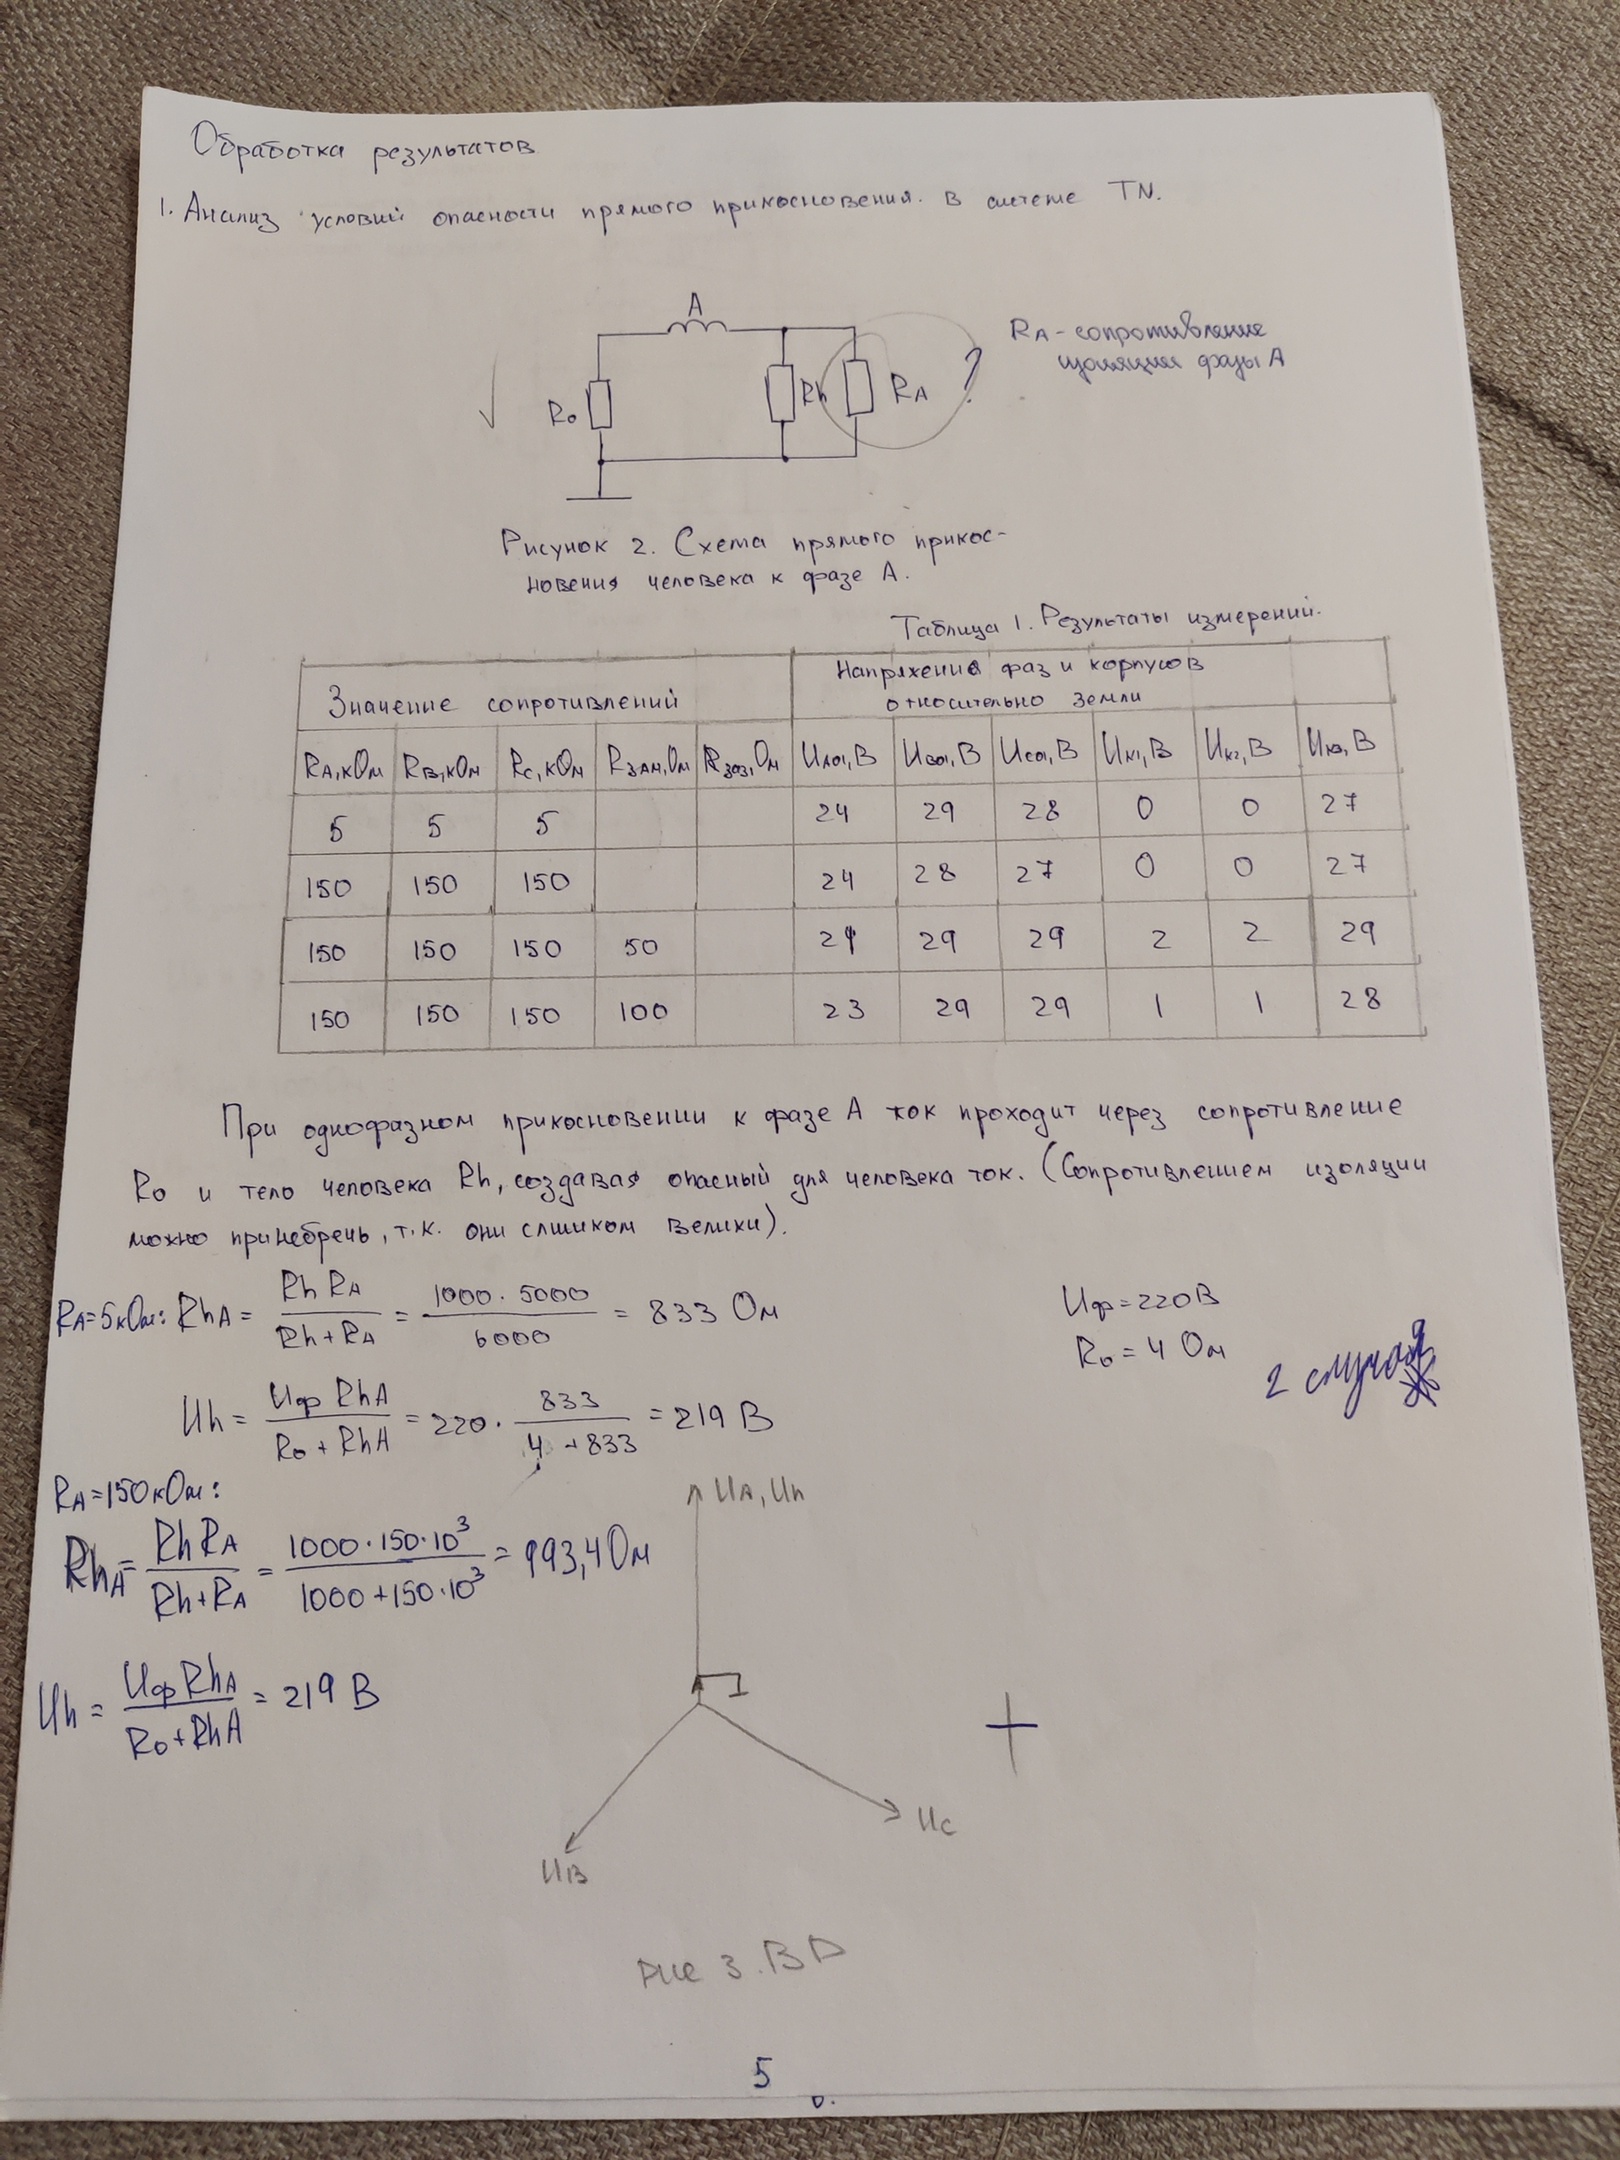 Обработка результатов
1. Анализ условий опасности прямого прикосновения в системе TN.
A
R₀
Rh
RA
?
RA - сопротивление
изоляции фазы A
Рисунок 2. Схема прямого прикос-
новения человека к фазе А.
Таблица 1. Результаты измерений.
Значение сопротивлений
Напряжения фаз и корпусов
относительно земли
RA, кОм RB, кОм RC, кОм RЗАМ, Ом Uк1, В Uк2, В Uк3, В
5 5 5 24 29 28 0 0 27
150 150 150 24 28 27 0 0 27
150 150 150 50 29 29 2 2 29
150 150 150 100 23 29 29 1 1 28
При однофазном прикосновении к фазе А ток проходит через сопротивление
R₀ и тело человека Rh, создавая опасный для человека ток. (Сопротивлением изоляции
можно принебречь, т.к. они слишком велики).
RA=5кОм: RhA = Rh RA / Rh+RA = 1000·5000 / 6000 = 833 Ом
Uф=220В
R₀ = 4 Ом
2 случая
Uh = Uф RhA / R₀ + RhA = 220· 833 / 4 + 833 = 219 В
RA=150кОм:
RhA = Rh RA / Rh+RA = 1000·150·10³ / 1000+150·10³ = 993,4 Ом
Uh = Uф RhA / R₀+RhA = 219 В
UA, Uh
UB
UC
+
Рис 3. ВD
5